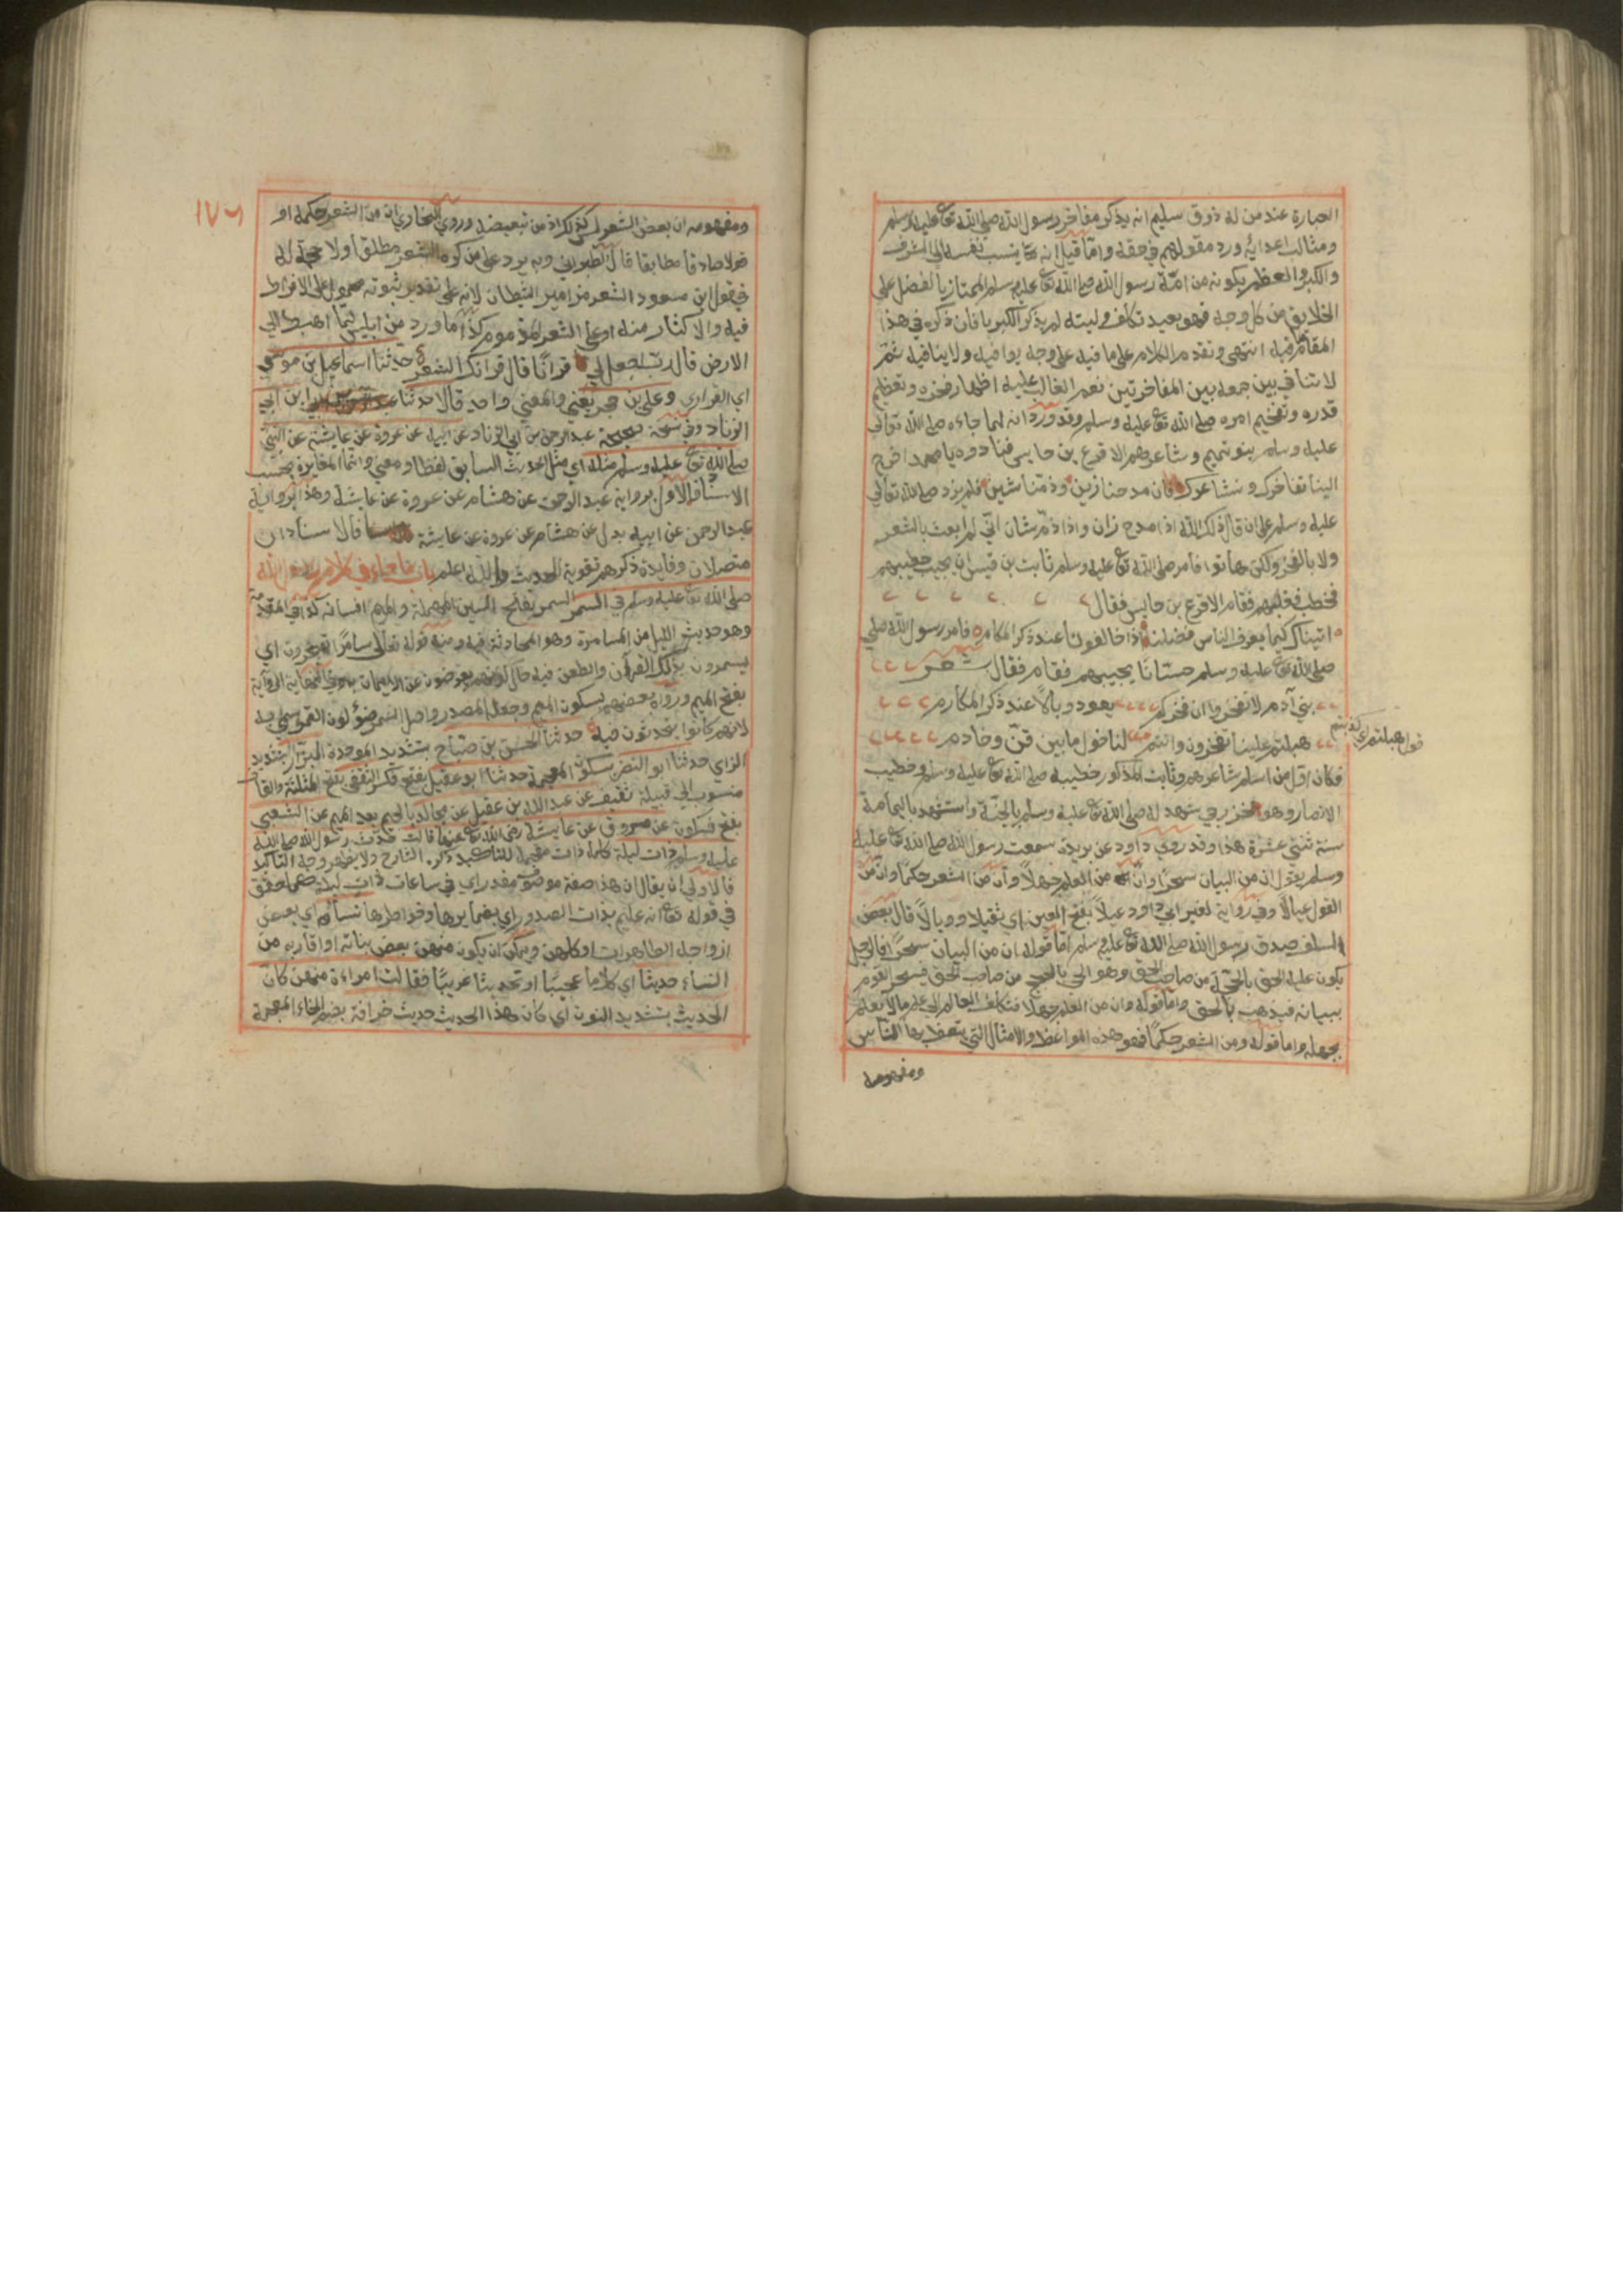 العبارة عند من له ذوق سليم انه يذكر مفاخر رسول الله صلى الله تع عليه وسلم
ومثالب اعدائه ورد مقولهم في حقه واما قيل انه ينسب نفسه الى الشرف
والكبر والعظم بكونه من امة رسول الله صلى الله تع عليه وسلم الممتاز بالفضل على
الخلايق من كل وجه فهو بعيد تكلف وليته لم يذكر الكبر يا فان ذكره في هذا
المقام فيه انتهى وتقدم الكلام على ما فيه على وجه يوافيه ولا ينافيه ثم
لا تنافي بين جمعه بين المفاخرتين نعم الغالب عليه اظهار فخره وتعظيم
قدره وتفخيم امره صلى الله تع عليه وسلم وقد ورد انه لما جاءه صلى الله تعالى
عليه وسلم بنو تميم وشاعرهم الاقرع بن حابس فنادوه يا محمد اخرج
الينا نفاخرك ونشاعرك فان مدحنا زين وذمنا شين فلم يزد صلى الله تعالى
عليه وسلم على ان قال ذلك الله اذا مدح زان واذا ذم شان اني لم ابعث بالشعر
ولا بالفخر ولكن هاتوا فامر صلى الله تع عليه وسلم ثابت بن قيس ان يجيب خطيبهم
فخطب فغلبهم فقام الاقرع بن حابس فقال
اتيناك كيما يعرف الناس فضلنا اذا خالفونا عند ذكر المكارم فامر رسول الله صلى
صلى الله تع عليه وسلم حسانا يجيبهم فقام فقال شعر
بني دارم لا تفخروا ان فخركم يعود وبالا عند ذكر المكارم
هبلتم علينا تفخرون وانتم لنا خول ما بين قن وخادم
قوله هبلتم اي
فكان اول من اسلم شاعرهم وثابت المذكور خطيبه صلى الله تع عليه وسلم وخطيب
الانصار وهو خزرجي شهد له صلى الله تع عليه وسلم بالجنة واستشهد باليمامة
سنة ثنتي عشرة هذا وقد روي داود عن بريدة سمعت رسول الله صلى الله تع عليه
وسلم يقول ان من البيان سحرا وان من العلم جهلا وان من الشعر حكما وان من
القول عيالا وفي رواية لغير ابي داود عيلا بفتح العين اي ثقيلا ووبالا قال بعض
السلف صدق رسول الله صلى الله تع عليه وسلم اما قوله ان من البيان سحرا فالرجل
يكون عليه الحق بالحجة من صاحب الحق وهو الحن بالحجج من صاحب الحق فيسحر القوم
ببيانه فيذهب بالحق واما قوله وان من العلم جهلا فتكلف العالم الى علمه ما لا يعلم
بجهله واما قوله ومن الشعر حكما فهو هذه المواعظ والامثال التي يتعظ بها الناس
ومفهومه
١٧٦
ومفهومه ان بعض الشعر ليس كذلك اذ من تبعيضه وروى البخاري ان من الشعر حكمة او
قولا صادقا مطابقا قال الطبراني وبه يرد على من كره الشعر مطلقا ولا حجة له
في قول ابن مسعود الشعر مزامير الشيطان لانه على تقدير ثبوته محمول على الافراط
فيه والاكثار منه او على الشعر المذموم كذا ما ورد من ابليس لما اهبط الى
الارض قال رب اجعل لي قرانا قال قرانك الشعر حدثنا اسماعيل بن موسى
اي الفزاري وعلي بن حجر يعني والمعنى واحد قالا حدثنا ابن ابي
الزناد وفي نسخة عبد الرحمن بن ابي الزناد عن ابيه عن عروة عن عايشة عن النبي
صلى الله تع عليه وسلم مثله اي مثل الحديث السابق لفظا ومعنى وانما المغايرة بحسب
الاسناد الاول برواية عبد الرحمن عن هشام عن عروة عن عايشة وهذا برواية
عبد الرحمن عن ابيه بدل عن هشام عن عروة عن عايشة فالاسنادان
متصلان وفايدة ذكرهم تقوية الحديث والله اعلم باب ما جاء في كلام رسول الله
صلى الله تع عليه وسلم في السمر السمر بفتح السين المهملة والميم افسانه كذا في المقدمة
وهو حديث الليل من المسامرة وهو المحادثة فيه ومنه قوله تعالى سامرا تهجرون اي
يسمرون بذكر القرآن والطعن فيه حال كونهم يعرضون عن الايمان به وفي النهاية الرواية
بفتح الميم ورواه بعضهم بسكون الميم وجعله المصدر واصل السمر ضوء لون القمر سمي به
لانهم كانوا يتحدثون فيه حدثنا الحسن بن صباح بتشديد الموحدة البزار بتشديد
الزاي حدثنا ابو النضر بسكون المعجمة حدثنا ابو عقيل بفتح فكسر الثقفي بفتح المثلثة والقاف
منسوب الى قبيلة ثقيف عن عبد الله بن عقيل عن مجالد بالجيم بعد الميم عن الشعبي
بفتح فسكون عن مسروق عن عايشة رضى الله تع عنها قالت حدث رسول الله صلى الله
عليه وسلم ذات ليلة كلمة ذات مقحمة للتاكيد ذكره الشارح ولا يظهر وجه التاكيد
فالاولى ان يقال ان هذا صفة موصوف مقدر اي في ساعات ذات ليلة كما حقق
في قوله تع انه عليم بذات الصدور اي بضمايرها وخواطرها نساءه اي بعض
ازواجه الطاهرات او كلهن ويمكن ان يكون منهن بعض بناته او اقاربه من
النساء حديثا اي كلاما عجيبا او تحديثا غريبا فقالت امراءة منهن كان
الحديث بتشديد النون اي كأن هذا الحديث حديث خرافة بضم الخاء المعجمة